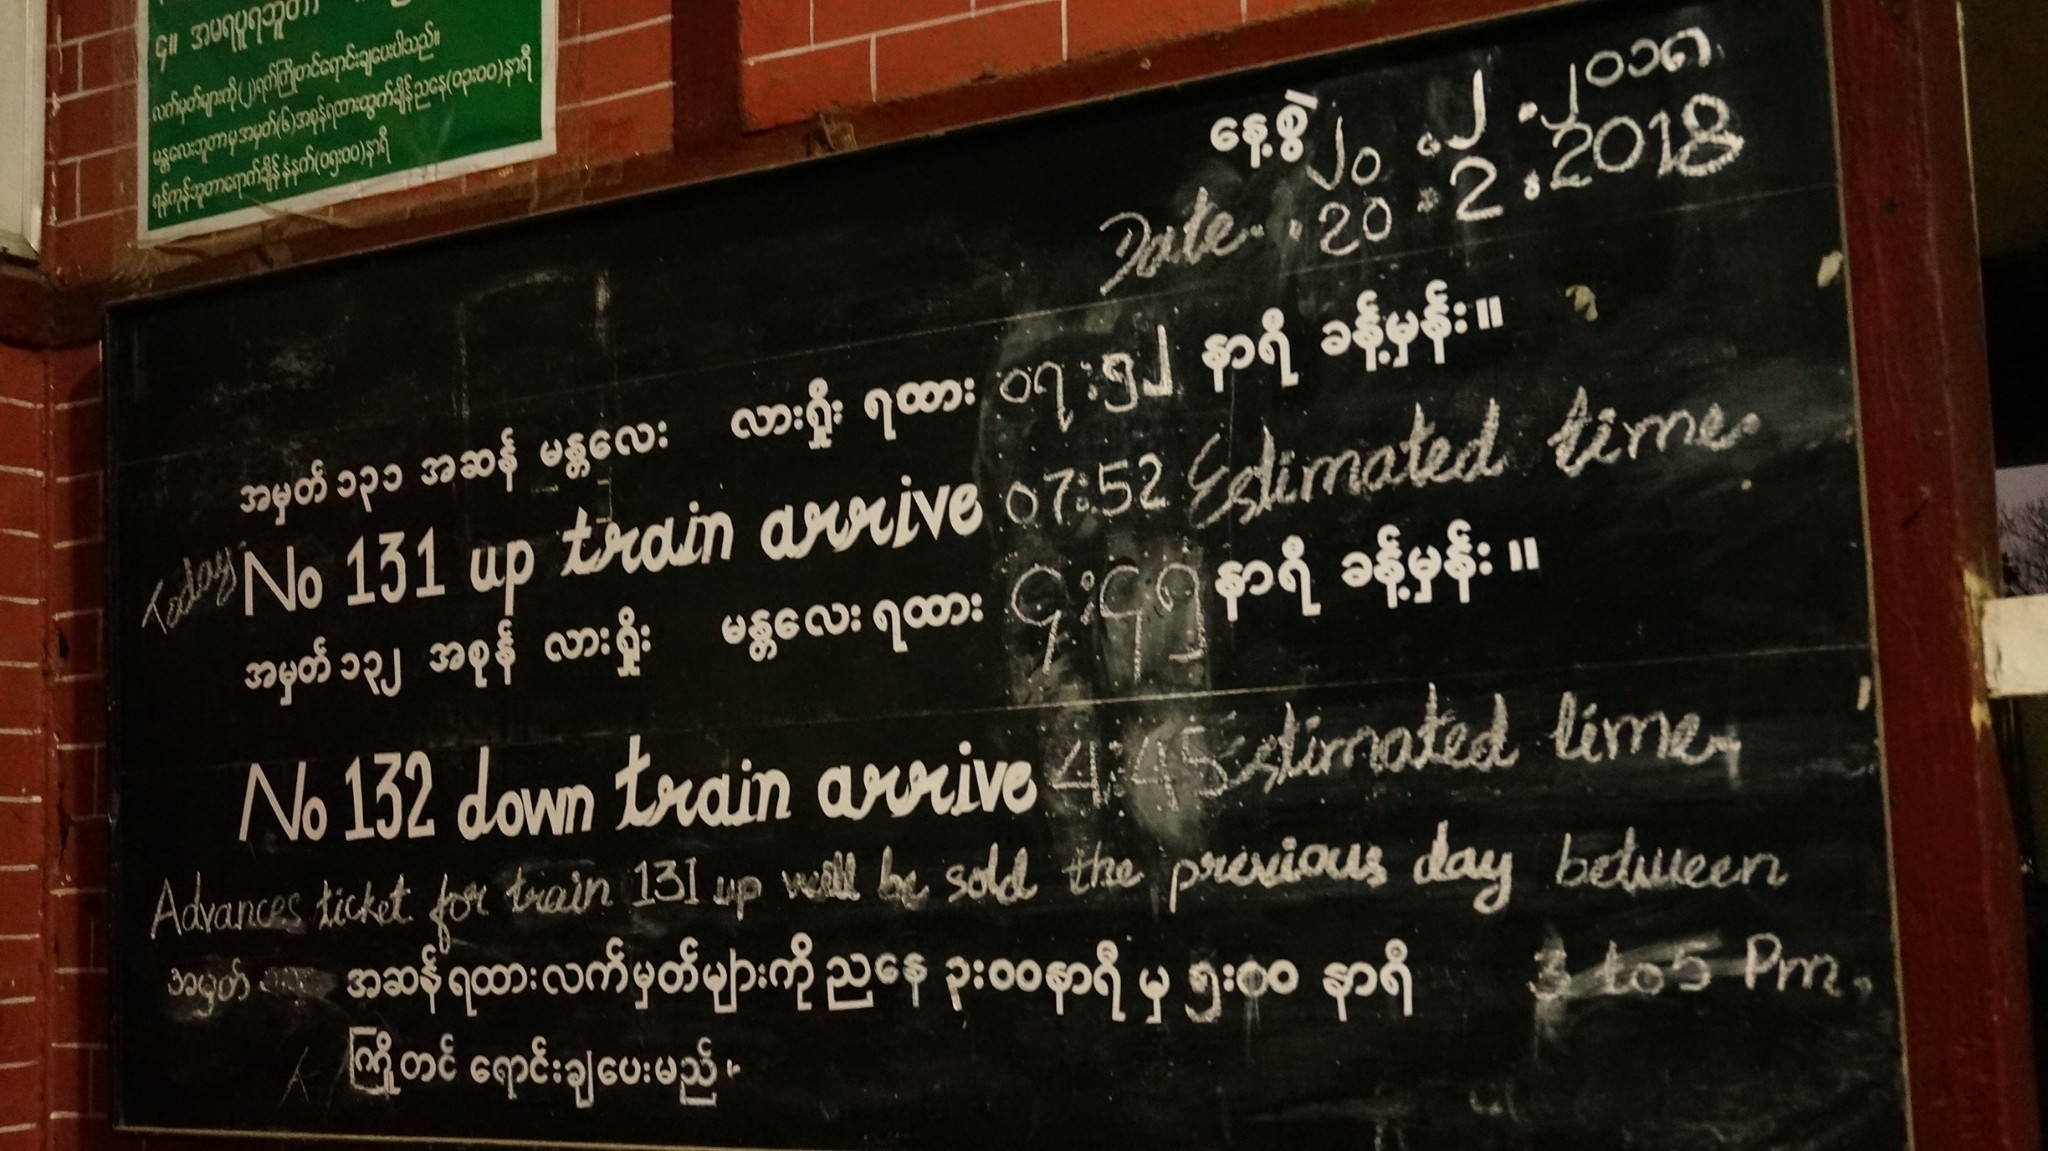 ၄။ အမရပူရဘူတာ
လက်မှတ်များကို(၂)ရက်ကြိုတင်ရောင်းချပေးပါသည်။
မန္တလေးဘူတာမှအမှတ်(၆)အစုန်ရထားထွက်ချိန်ညနေ(၀၃:၀၀)နာရီ
ရန်ကုန်ဘူတာရောက်ချိန်နံနက်(၀၅:၀၀)နာရီ
နေ့စွဲ ၂၀.၂.၂၀၁၈
Date.. 20.2.2018
အမှတ် ၁၃၁ အဆန် မန္တလေး လားရှိုး ရထား ၀၇:၅၂ နာရီ ခန့်မှန်း။
Today No 131 up train arrive 07:52 Estimated time.
အမှတ် ၁၃၂ အစုန် လားရှိုး မန္တလေး ရထား ၄:၄၅ နာရီ ခန့်မှန်း။
No 132 down train arrive 4:45 Estimated time,
Advances ticket for train 131 up will be sold the previous day between
အမှတ် အဆန်ရထားလက်မှတ်များကို ညနေ ၃:၀၀နာရီ မှ ၅:၀၀ နာရီ 3 to 5 Pm.
ကြိုတင် ရောင်းချပေးမည်။